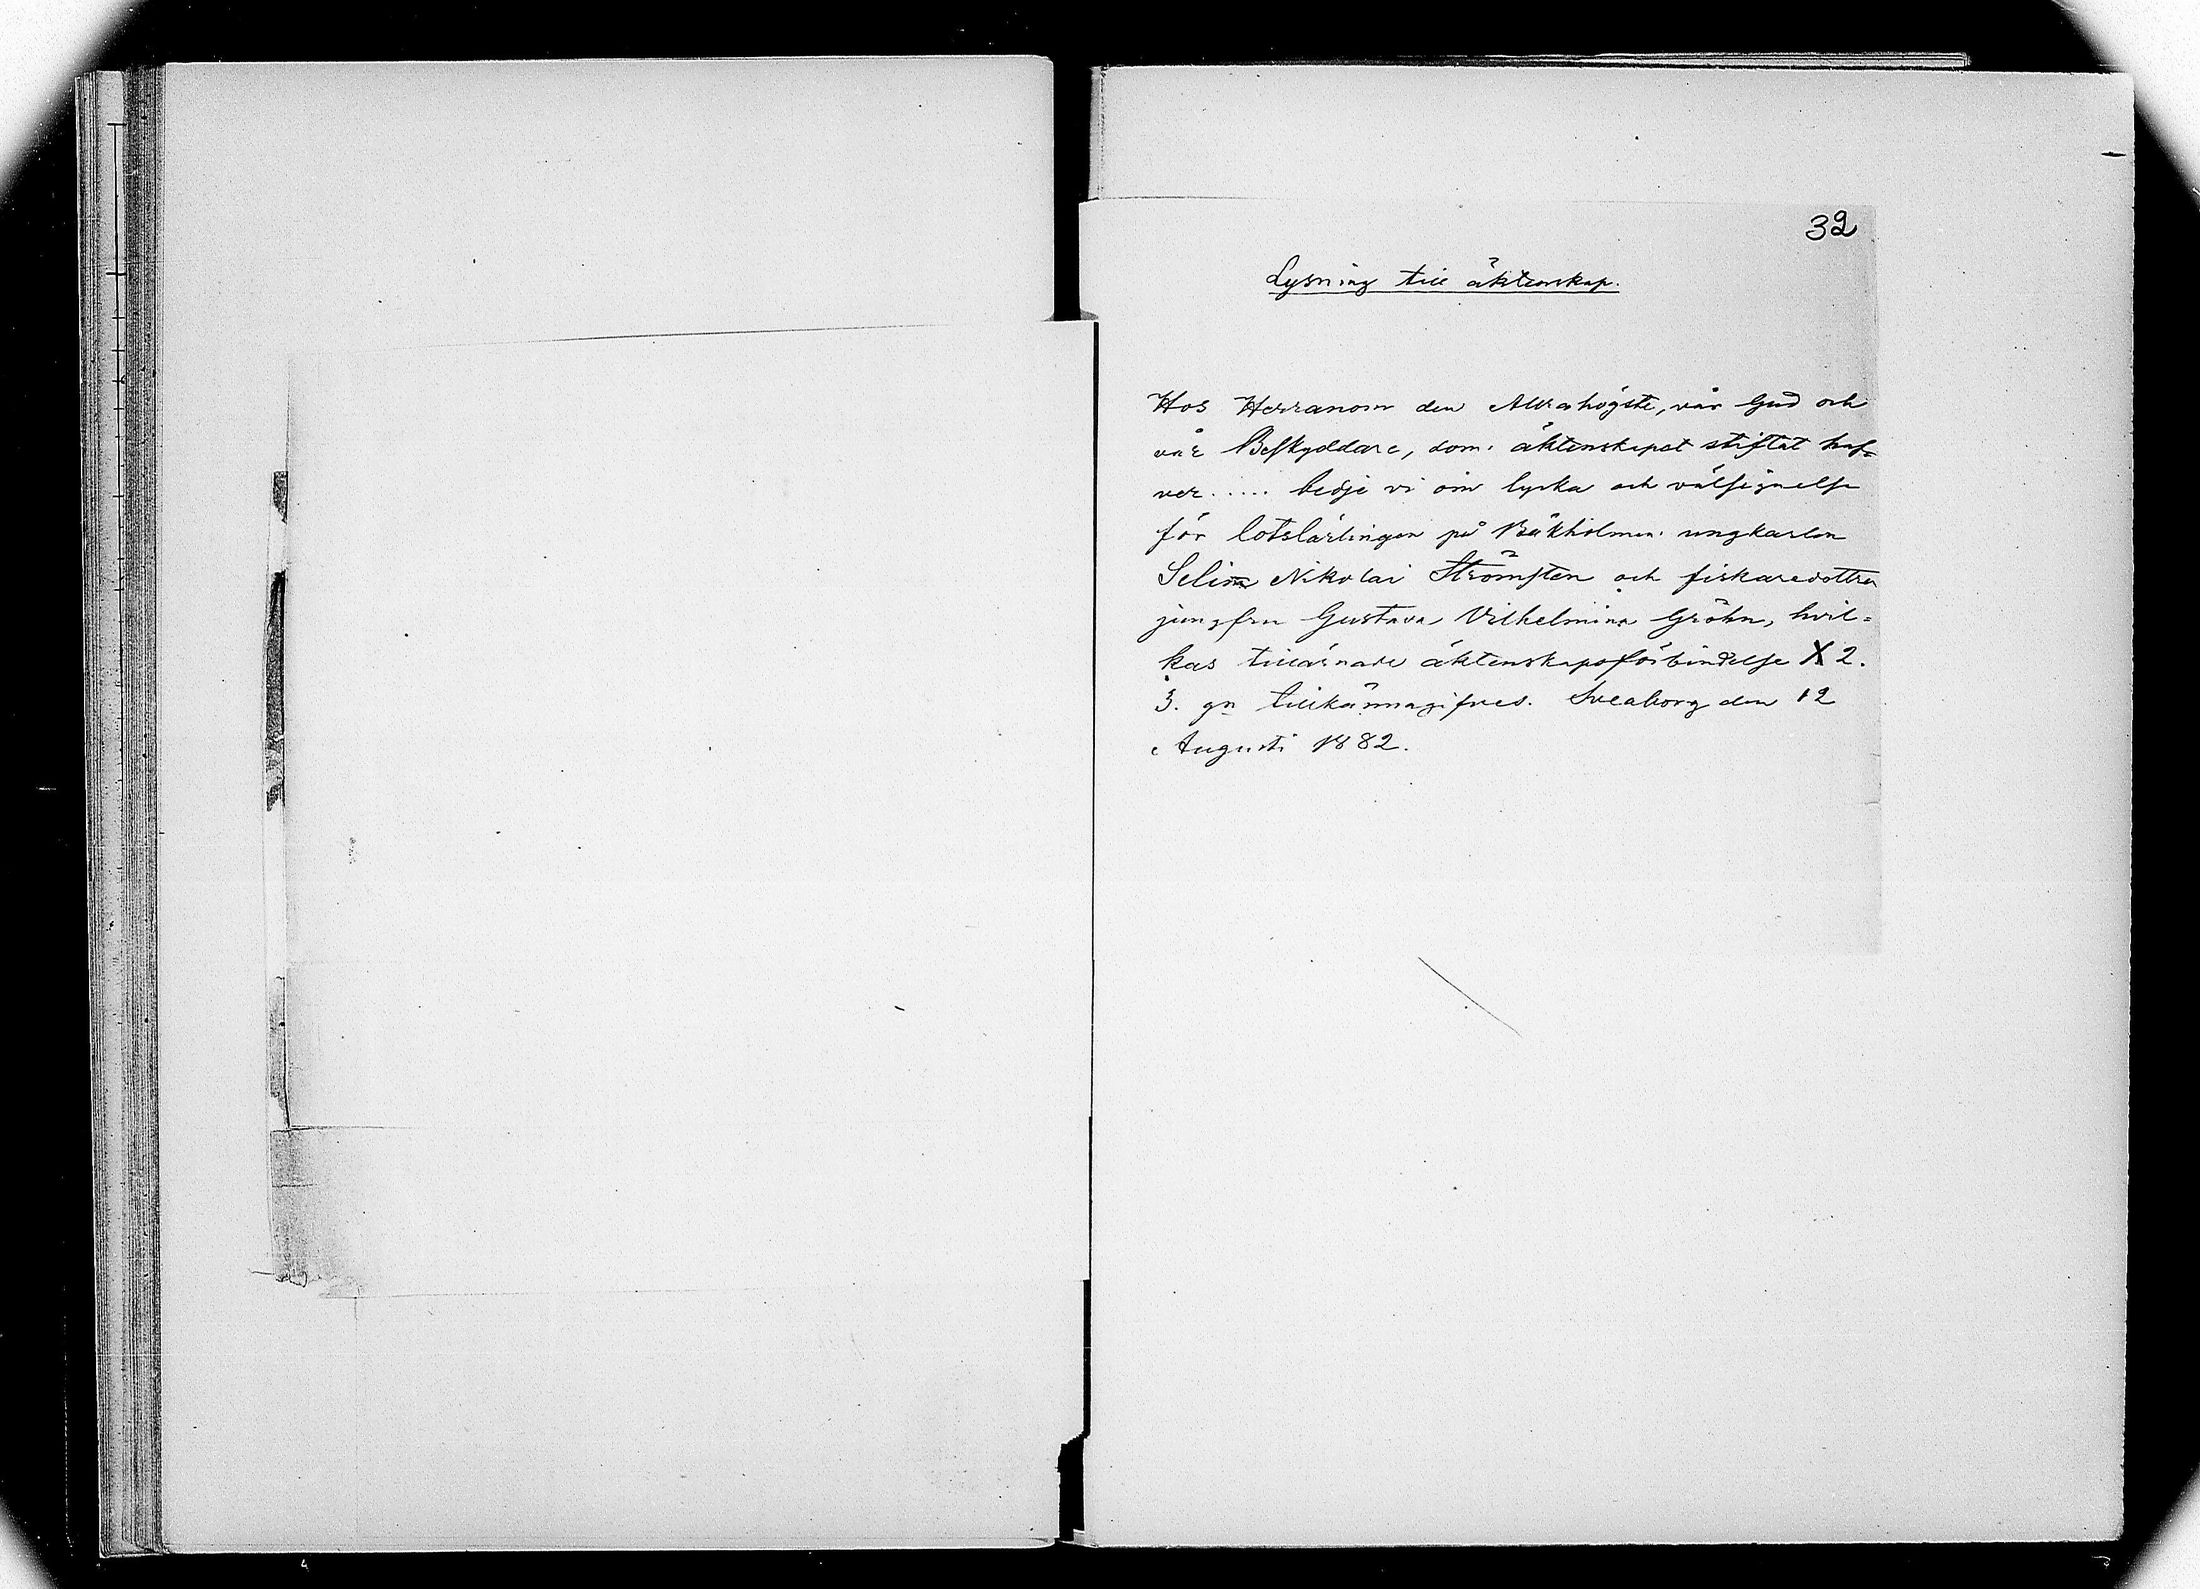 32
Lysning till äktenskap.
Hos Herranom den Allrahögste, vår Gud och
vår Beskyddare, som äktenskapet stiftat haf=
ver..... bedje vi om lycka och välsignelse
för lotslärlingen på Båkholmen ungkarlen
Selim Nikolai Strömsten och fiskaredottren
jungfru Gustava Vilhelmina Gröhn, hvil=
kas tillärnade äktenskapsförbindelse X 2.
3. gn tillkännagifves. Sveaborg den 12
Augusti 1882.